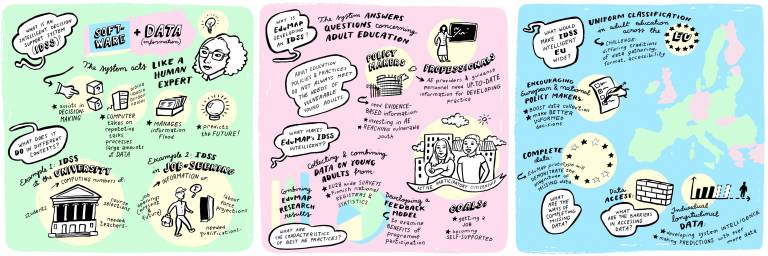 WHAT IS AN
INTELLIGENT DECISION
SUPPORT SYSTEM
(IDSS)?
SOFT-
WARE + DATA
(information)
The system acts LIKE A
HUMAN
EXPERT
assists in
DECISION-
MAKING
COMPUTER
takes on
repetitive
tasks,
processes
large amounts
of DATA
MANAGES
information
flood
predicts
the FUTURE!
WHAT DOES IT
DO IN DIFFERENT
CONTEXTS?
Example 1: IDSS
at the UNIVERSITY
COMPUTING numbers of:
students
course
selections
needed
teachers
Example 2: IDSS
in JOB-SEEKING
INFORMATION on
labour
force
projections
needed
qualifications
WHAT IS
EduMAP
DEVELOPING
AN IDSS?
The system ANSWERS
QUESTIONS concerning
ADULT EDUCATION
ADULT EDUCATION
POLICIES & PRACTICES
DO NOT ALWAYS MEET
THE NEEDS OF
VULNERABLE
YOUNG ADULTS.
POLICY
MAKERS
need EVIDENCE-
BASED information
investing in AE
REACHING vulnerable
youth
PROFESSIONALS
AE providers & guidance
personnel need UP-TO-DATE
information for DEVELOPING
practice
WHAT MAKES
EduMAP's IDSS
INTELLIGENT?
Collecting & combining
DATA ON YOUNG
ADULTS from
EU28 WIDE SURVEYS
Finnish national
REGISTERS &
STATISTICS
ACTIVE PARTICIPATORY CITIZENSHIP
Combining
EduMAP
RESEARCH
results
Developing a
FEEDBACK
MODEL
to examine
BENEFITS of
programme
participation
GOALS:
getting a
JOB
becoming
SELF-SUPPORTED
WHAT ARE THE
CHARACTERISTICS
OF BEST AE PRACTICES?
WHAT WOULD
MAKE IDSS
INTELLIGENT
EU
WIDE?
UNIFORM CLASSIFICATION
in adult education
across the EU
CHALLENGE:
differing traditions
of data gathering,
format, accessibility
ENCOURAGING
European & national
POLICY MAKERS:
BOOST data collection
make BETTER
INFORMED
decisions
COMPLETE
data:
EduMAP prototype will
DEMONSTRATE the
significance of
MISSING DATA
WHAT ARE
THE WAYS OF
COMPLETING
MISSING DATA?
DATA
ACCESS:
WHAT ARE
THE BARRIERS
IN ACCESSING
DATA?
Individual
longitudinal
DATA:
developing system INTELLIGENCE
making PREDICTIONS with more data